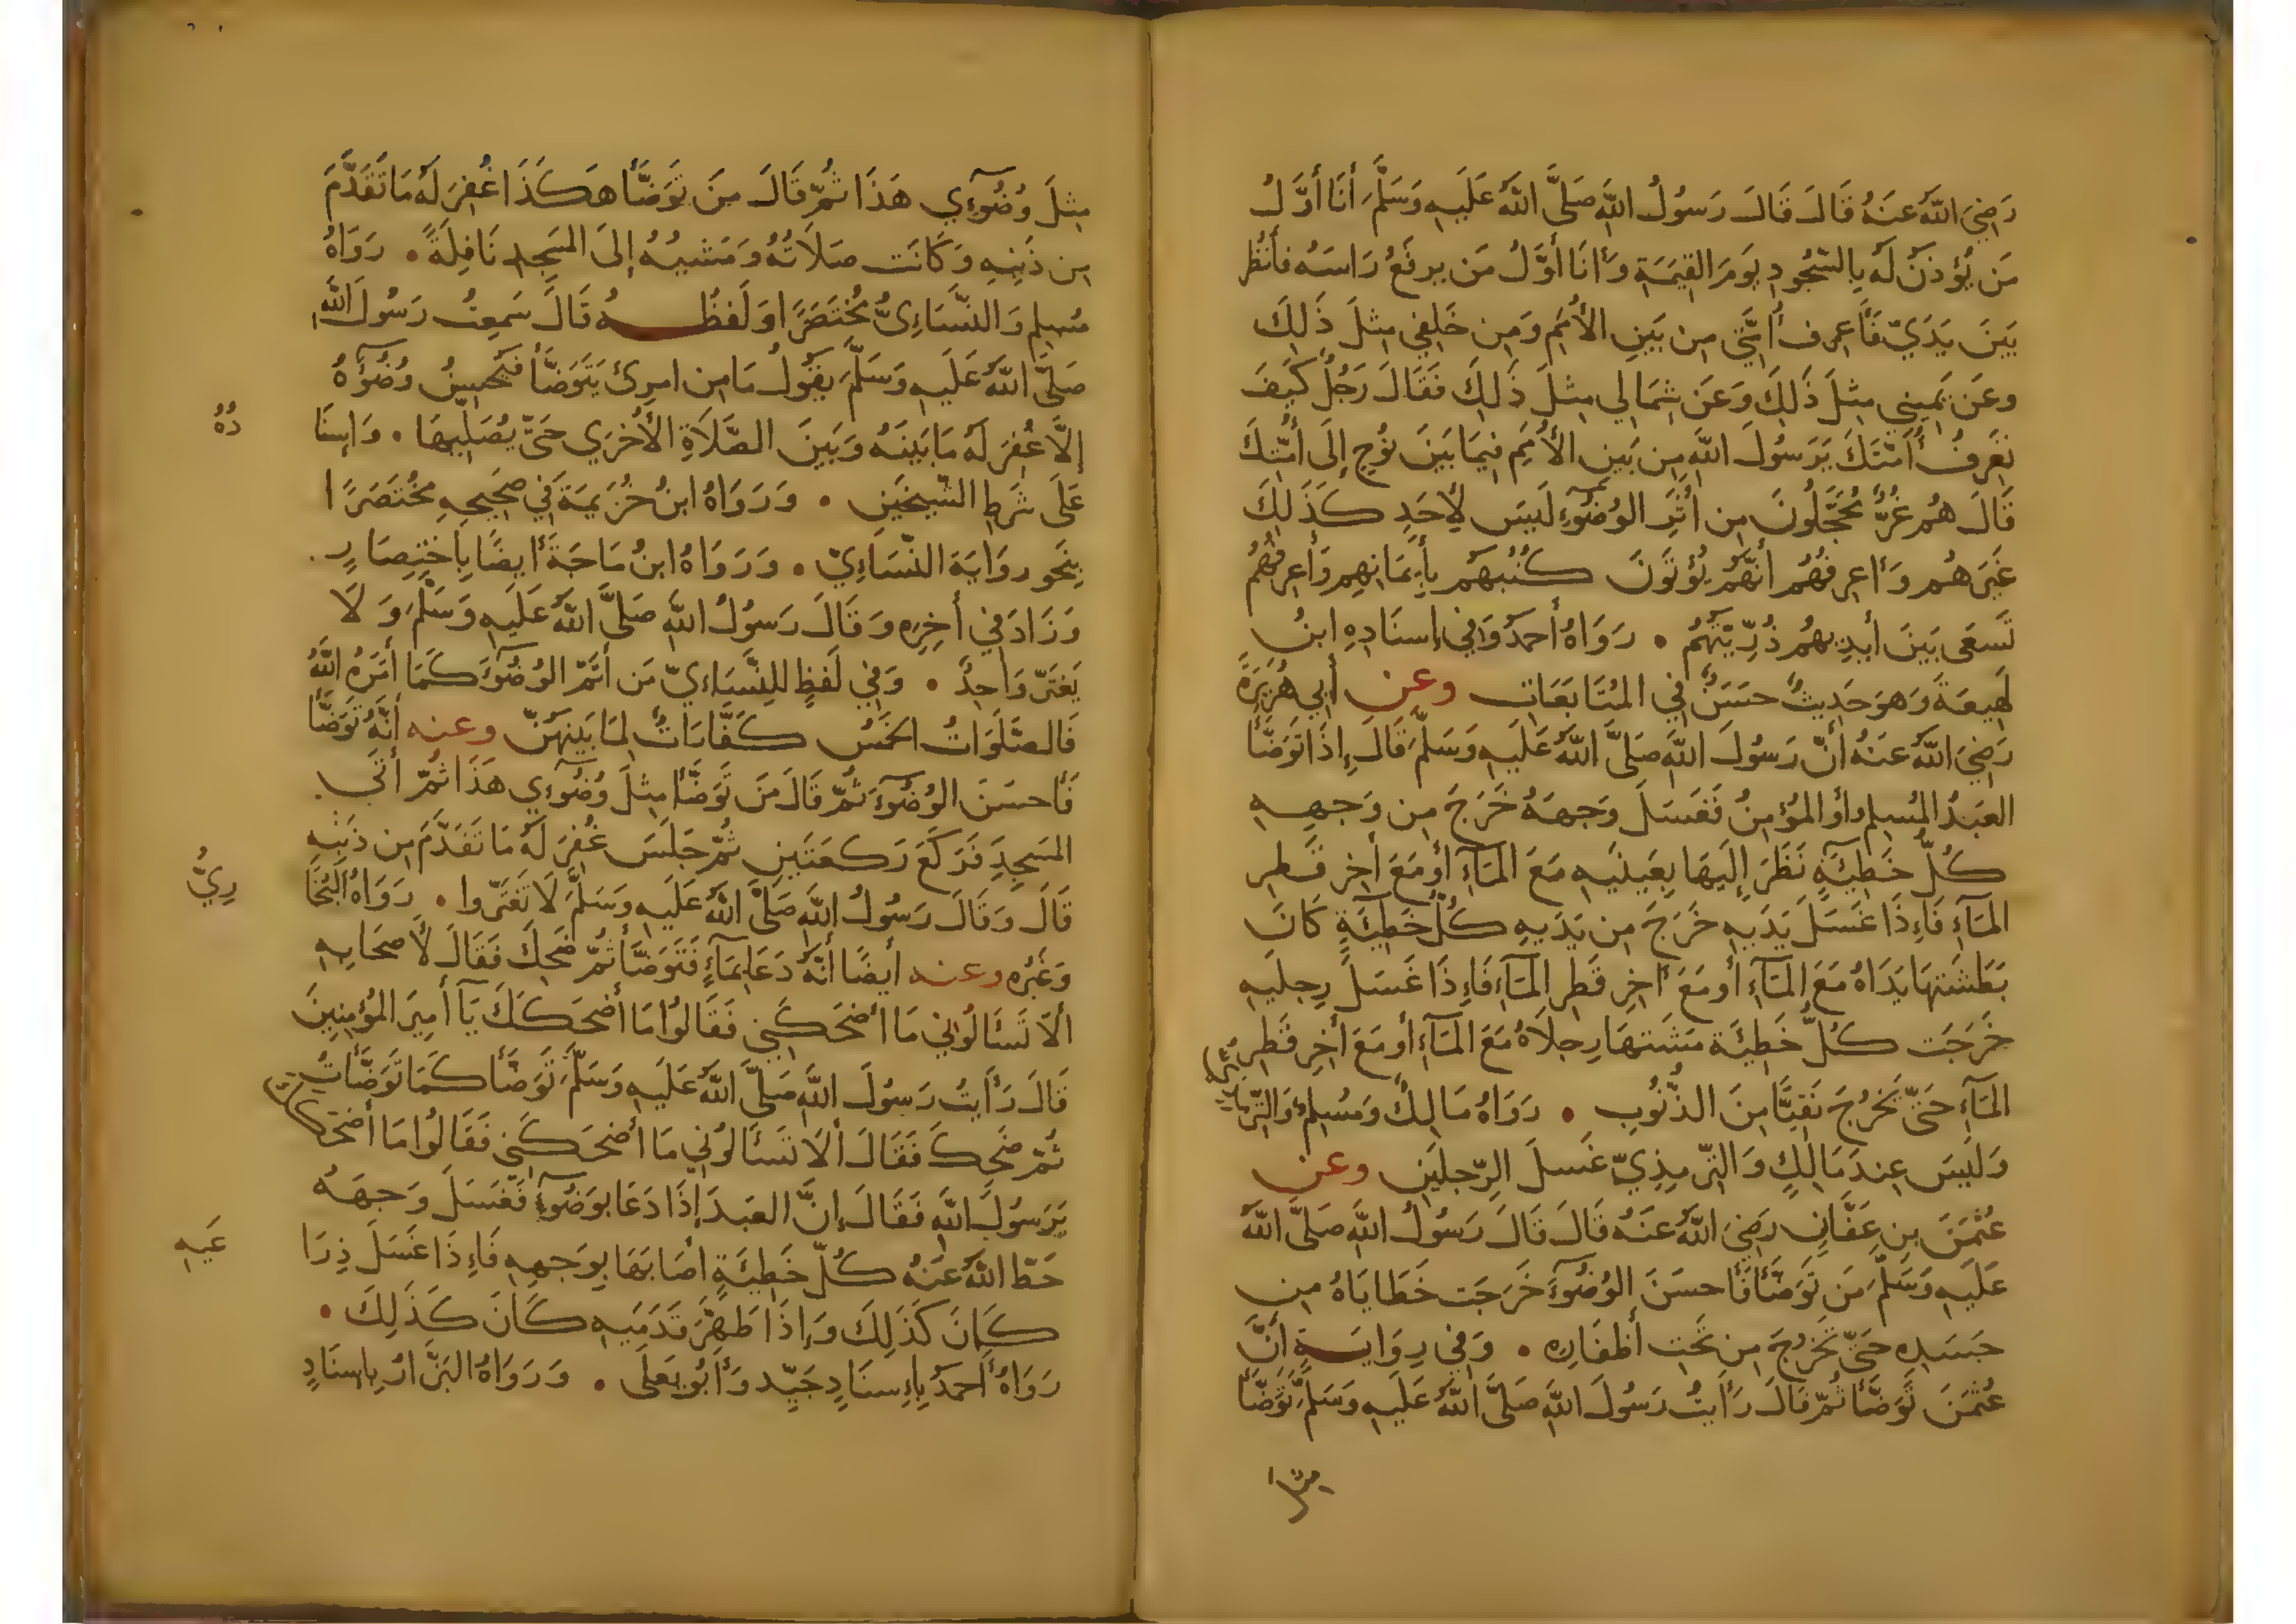 رَضِيَ اللَّهُ عَنهُ قَالَ قَالَ رَسُولُ اللَّهِ صَلَّى اللَّهُ عَلَيهِ وَسَلَّمَ أَنَا أَوَّلُ
مَن يُؤذَنُ لَهُ بِالسُّجُودِ يَومَ القِيَمَةِ وَأَنَا أَوَّلُ مَن يَرفَعُ رَاسَهُ فَأَنظُرُ
بَينَ يَدَيَّ فَأَعرِف أُمَّتِي مِن بَينِ الأُمَمِ وَمِن خَلفِي مِثلَ ذَلِكَ
وعَن يَمِينِي مِثلَ ذَلِكَ وَعَن شِمَالِي مِثلَ ذَلِكَ فَقَالَ رَجُلٌ كَيفَ
تَعرِفُ أُمَّتَكَ يَرَسُولَ اللَّهِ مِن بَينِ الأُمَمِ فِيمَا بَينَ نُوحٍ إِلَى أُمَّتِكَ
قَالَ هُم غُرٌّ مُحَجَّلُونَ مِن أَثَرِ الوُضُوءِ لَيسَ لِأَحَدٍ كَذَلِكَ
غَيرَهُم وَأَعرِفُهُم أَنَّهُم يُؤتَونَ كُتُبَهُم بِأَيمَانِهِم وَأَعرِفُهُم
تَسعَى بَينَ أَيدِيهِم ذُرِّيَّتُهُم • رَوَاهُ أَحمَدُ وَفِي إِسنَادِهِ ابنُ
لَهِيعَةَ وَهوَ حَدِيثٌ حَسَنٌ فِي المُتَابَعَاتِ وعن أَبِي هُرَيرَةَ
رَضِيَ اللَّهُ عَنهُ أَنَّ رَسُولَ اللَّهِ صَلَّى اللَّهُ عَلَيهِ وَسَلَّمَ قَالَ إِذَا تَوَضَّأَ
العَبدُ المُسلِمُ أَو المُؤمِنُ فَغَسَلَ وَجهَهُ خَرَجَ مِن وَجهِهِ
كُلُّ خَطِيئَةٍ نَظَرَ إِلَيهَا بِعَينَيهِ مَعَ المَآءِ أَو مَعَ أَخِرِ قَطرِ
المَآءِ فَإِذَا غَسَلَ يَدَيهِ خَرَجَ مِن يَدَيهِ كُلُّ خَطِيئَةٍ كَانَ
بَطَشَتهَا يَدَاهُ مَعَ المَآءِ أَو مَعَ أَخِرِ قَطرِ المَآءِ فَإِذَا غَسَلَ رِجلَيهِ
خَرَجَت كُلُّ خَطِيئَة مَشَتهَا رِجلَاهُ مَعَ المَآءِ أَو مَعَ أَخِرِ قَطرِ
المَآءِ حَتَّى تَخرُجَ نَقِيًّا مِنَ الذُّنُوبِ • رَوَاهُ مَالِكٌ وَمُسلِمٌ وَالتِّرمِذِيُّ
وَلَيسَ عِندَ مَالِكٍ وَالتِّرمِذِيِّ غَسلَ الرِّجلَينِ وعن
عُثمَنَ بنِ عَفَّانِ رَضِيَ اللَّهُ عَنهُ قَالَ قَالَ رَسُولُ اللَّهِ صَلَّى اللَّهُ
عَلَيهِ وَسَلَّمَ مَن تَوَضَّأَ فَأَحسَنَ الوُضُوءَ خَرَجَت خَطَايَاهُ مِن
جَسَدِهِ حَتَّى تَخرُجَ مِن تَحتِ أَظفَارِهِ • وَفِي رِوَايَةٍ أَنَّ
عُثمَنَ تَوَضَّأَ ثُمَّ قَالَ رَأَيتُ رَسُولَ اللَّهِ صَلَّى اللَّهُ عَلَيهِ وَسَلَّمَ تَوَضَّأَ
مِثلَ
مِثلَ وُضُوءِي هَذَا ثُمَّ قَالَ مَن تَوَضَّأَ هَكَذَا غُفِرَ لَهُ مَا تَقَدَّمَ
مِن ذَنبِهِ وَكَانَت صَلَاتُهُ وَمَشيُهُ إِلَى المَسجِدِ نَافِلَةً • رَوَاهُ
مُسلِم وَالنَّسَاءِيُّ مُختَصَرًا وَلَفظُهُ قَالَ سَمِعتُ رَسُولَ اللَّهِ
صَلَّى اللَّهُ عَلَيهِ وَسَلَّمَ يَقُولُ مَا مِن امرِئٍ يَتَوَضَّأُ فَيُحسِنُ وُضُوءَهُ
إِلَّا غُفِرَ لَهُ مَا بَينَهُ وَبَينَ الصَّلَاةِ الأُخرَي حَتَّى يُصَلِّيهَا • وَإِسنَا
دُهُ
عَلَى شَرطِ الشَّيخَينِ • وَرَوَاهُ ابنُ خُزَيمَةَ فِي صَحِيحِهِ مُختَصَرًا
بِنَحوِ رِوَايَةِ النَّسَاءِيِّ • وَرَوَاهُ ابنُ مَاجَةَ أَيضًا بِاختِصَارٍ •
وَزَادَ فِي أَخِرِهِ وَقَالَ رَسُولُ اللَّهِ صَلَّى اللَّهُ عَلَيهِ وَسَلَّمَ وَلَا
يَغتَرَّ وَاحِدٌ • وَفِي لَفظٍ لِلنَّسَاءِيِّ مَن أَتَمَّ الوُضُوءَ كَمَا أَمَرَهُ اللَّهُ
فَالصَّلَوَاتُ الخَمسُ كَفَّارَاتٌ لِمَا بَينَهُنَّ وعنه أَنَّهُ تَوَضَّأَ
فَأَحسَنَ الوُضُوءَ ثُمَّ قَالَ مَن تَوَضَّأَ مِثلَ وُضُوءِي هَذَا ثُمَّ أَتَي •
المَسجِدَ فَرَكَعَ رَكعَتَينِ ثُمَّ جَلَسَ غُفِرَ لَهُ مَا تَقَدَّمَ مِن ذَنبِهِ
قَالَ وَقَالَ رَسُولُ اللَّهِ صَلَّى اللَّهُ عَلَيهِ وَسَلَّمَ لَا تَغتَرُّوا • رَوَاهُ البُخَا
رِيُّ
وَغَيرُه وعنه أَيضًا أَنَّهُ دَعَا بِمَآءٍ فَتَوَضَّأَ ثُمَّ ضَحِكَ فَقَالَ لِأَصحَابِهِ
أَلَا تَسأَلُونِي مَا أَضحَكَنِي فَقَالُوا مَا أَضحَكَكَ يَآ أَمِيرَ المُؤمِنِينَ
قَالَ رَأَيتُ رَسُولَ اللَّهِ صَلَّى اللَّهُ عَلَيهِ وَسَلَّمَ تَوَضَّأَ كَمَا تَوَضَّأتُ
ثُمَّ ضَحِكَ فَقَالَ أَلَا تَسأَلُونِي مَا أَضحَكَنِي فَقَالُوا مَا أَضحَكَكَ
يَرَسُولَ اللَّهِ فَقَالَ إِنَّ العَبدَ إِذَا دَعَا بِوَضُوءٍ فَغَسَلَ وَجهَهُ
حَطَّ اللَّهُ عَنهُ كُلَّ خَطِيئَةٍ أَصَابَهَا بِوَجهِهِ فَإِذَا غَسَلَ ذِرَا
عَيهِ
كَانَ كَذَلِكَ وَإِذَا طَهَّرَ قَدَمَيهِ كَانَ كَذَلِكَ •
رَوَاهُ أَحمَدُ بِإِسنَادٍ جَيِّد وَأَبُو يَعلَى • وَرَوَاهُ البَزَّارُ بِإِسنَادٍ